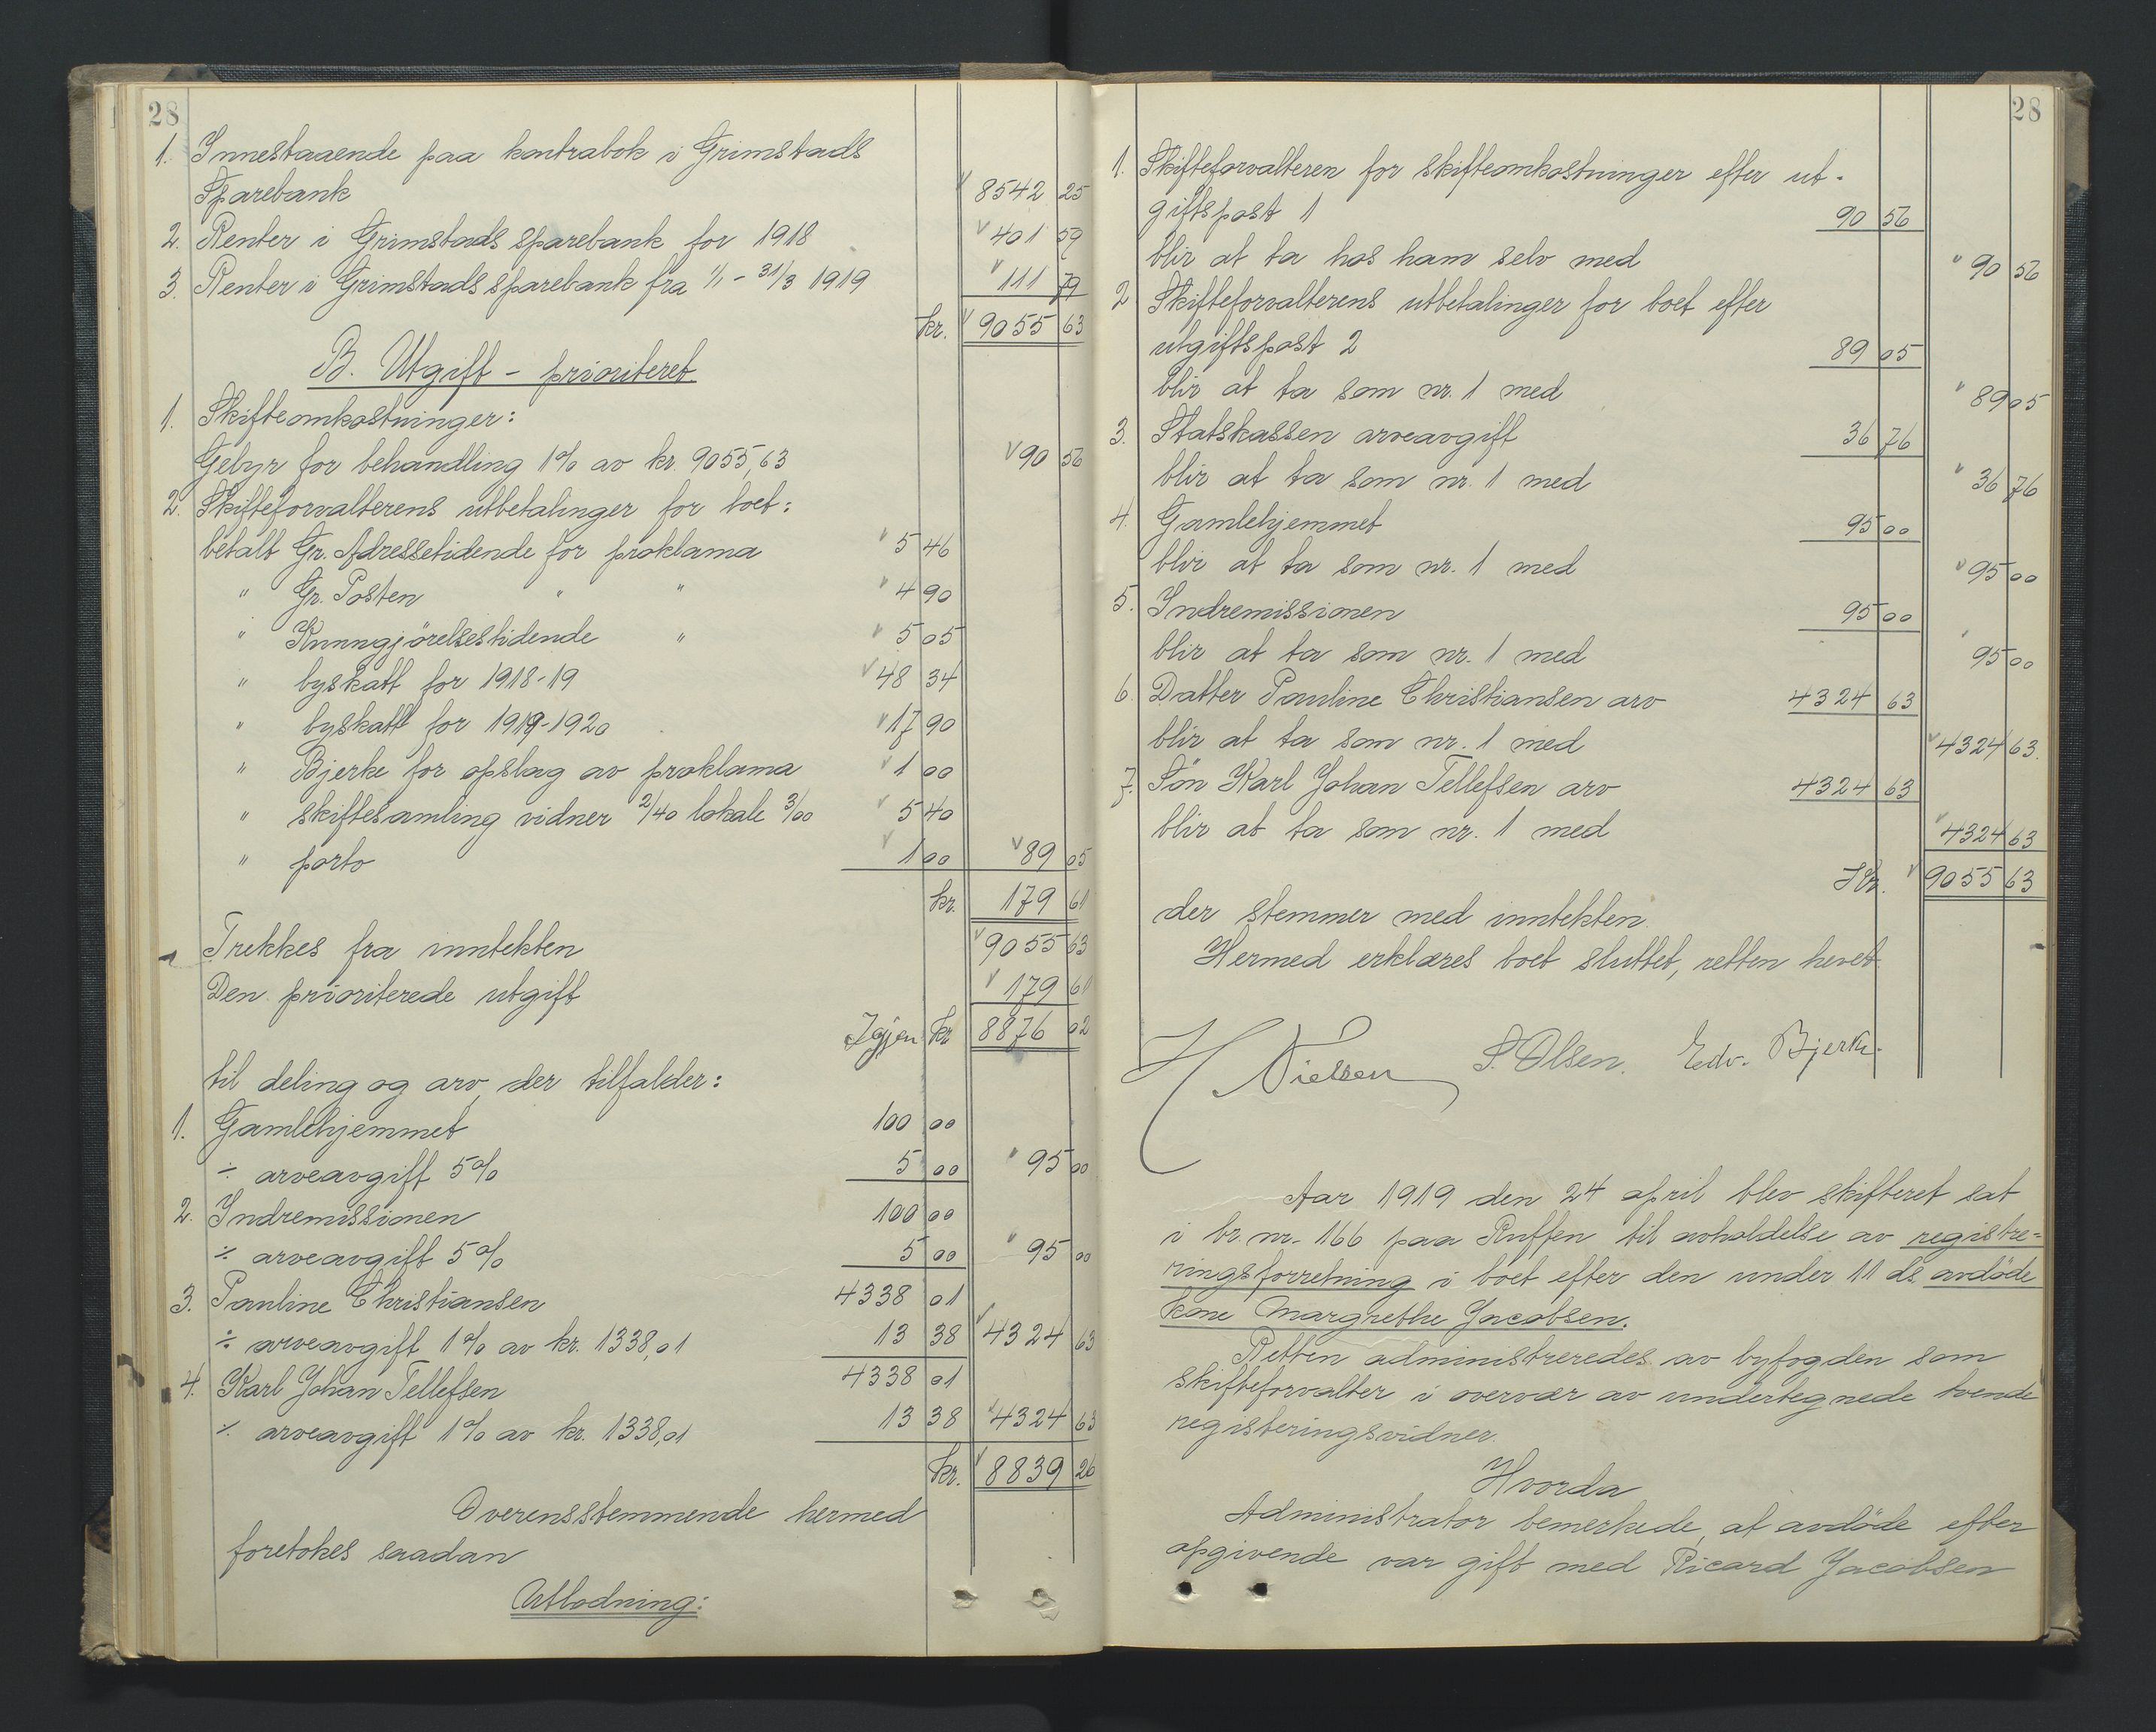 28
1. Innestaaende paa kontrabok i Grimstads
Sparebank 8542 25
2. Renter i Grimstads sparebank for 1918 401 59
3. Renter i Grimstads sparebank fra 1/1 - 31/3 1919 111 79
kr. 9055 63
B. Utgift - prioriteret
1. Skifteomkostninger:
Gebyr for behandling 1% av kr. 9055,63 90 56
2. Skifteforvalterens utbetalinger for boet:
betalt Gr. Adressetidende for proklama 5 46
" Gr. Posten " " 4 90
" Kunngjörelsestidende " 5 05
" byskatt for 1918-19 48 34
" byskatt for 1919-1920 17 90
" Bjerke for opslag av proklama 1 00
" skiftesamling vidner 2/40 lokale 3/00 5 40
" porto 1 00 89 05
kr. 179 61
Trekkes fra inntekten 9055 63
Den prioriterede utgift 179 61
Igjen kr 8876 02
til deling og arv der tilfalder:
1. Gamlehjemmet 100 00
÷ arveavgift 5% 5 00 95 00
2. Indremissionen 100 00
÷ arveavgift 5% 5 00 95 00
3. Pauline Christiansen 4338 01
÷ arveavgift 1% av kr. 1338,01 13 38 4324 63
4. Karl Johan Tellefsen 4338 01
÷ arveavgift 1% av kr. 1338,01 13 38 4324 63
kr. 8839 26
Overensstemmende hermed
foretokes saadan
Utlodning:
28
1. Skifteforvalteren for skifteomkostninger efter ut-
giftspost 1 90 56
blir at ta hos ham selv med 90 56
2 Skifteforvalterens utbetalinger for boet efter
utgiftspost 2 89 05
blir at ta som nr. 1 med 89 05
3. Statskassen arveavgift 36 76
blir at ta som nr. 1 med 36 76
4. Gamlehjemmet 95 00
blir at ta som nr. 1 med 95 00
5. Indremissionen 95 00
blir at ta som nr. 1 med 95 00
6. Datter Pauline Christiansen arv 4324 63
blir at ta som nr. 1 med 4324 63
7. Sön Karl Johan Tellefsen arv 4324 63
blir at ta som nr. 1 med 4324 63
Kr. 9055 63
der stemmer med inntekten.
Hermed erklæres boet sluttet, retten hevet.
H Nielsen S. Olsen. Edv. Bjerke.
Aar 1919 den 24 april blev skifteret sat
i br. nr. 166 paa Ruffen til avholdelse av registre-
ringsforretning i boet efter den under 11 ds. avdöde
kone Margrethe Jacobsen.
Retten administreredes av byfogden som
skifteforvalter i overvær av undertegnede tvende
registeringsvidner.
Hvorda
Administrator bemerkede, at avdöde efter
opgivende var gift med Ricard Jacobsen